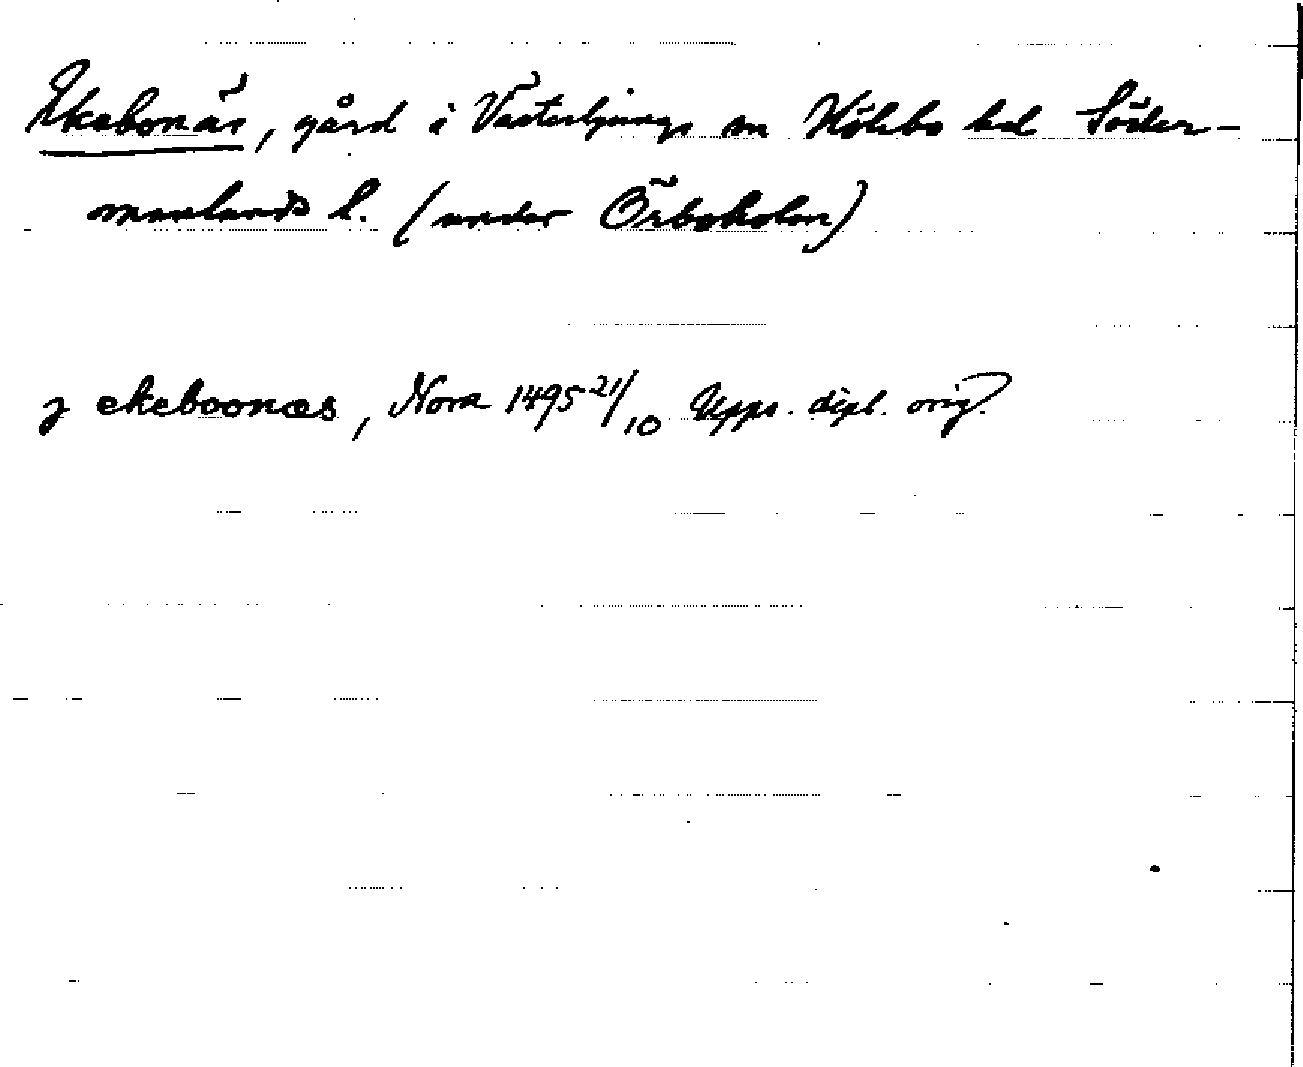 Ekebonäs, gård i Västerljungs sn Hölebo hd Söder-
manlands l. (under Öreboholm)
j ekeboonæs, Nora 1495 21/10 Upps. dipl. orig.